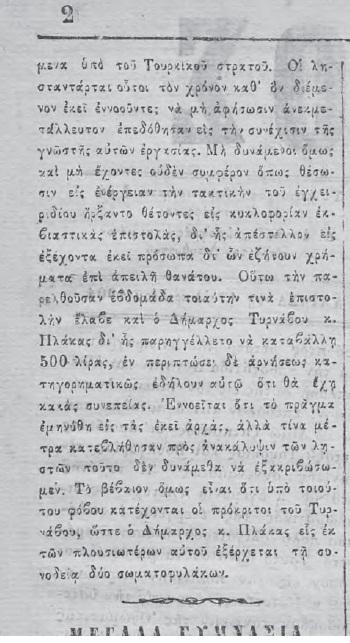 2
μενα ὑπὸ τοῦ Τουρκικοῦ στρατοῦ. Οἱ λῃ-
σταντάρται οὗτοι τὸν χρόνον καθ᾿ ὃν διέμε-
νον ἐκεῖ ἐννοοῦντες νὰ μὴ ἀφήσωσιν ἀνεκμε-
τάλλευτον ἐπεδόθησαν εἰς τὴν συνέχισιν τῆς
γνωστῆς αὐτῶν ἐργασίας. Μὴ δυνάμενοι ὅμως
καὶ μὴ ἔχοντες οὐδὲν συμφέρον ὅπως θέσω-
σιν εἰς ἐνέργειαν τὴν τακτικὴν τοῦ ἐγχει-
ριδίου ἤρξαντο θέτοντες εἰς κυκλοφορίαν ἐκ-
βιαστικὰς ἐπιστολὰς, δι᾿ ἧς ἀπέστελλον εἰς
ἐξέχοντα ἐκεῖ πρόσωπα δι᾿ ὧν ἐζήτουν χρή-
ματα ἐπὶ ἀπειλῇ θανάτου. Οὕτω τὴν πα-
ρελθοῦσαν ἑβδομάδα τοιαύτην τινὰ ἐπιστο-
λὴν ἔλαβε καὶ ὁ Δήμαρχος Τυρνάβου κ.
Πλάκας δι᾿ ἧς παρηγγέλλετο νὰ καταβάλλῃ
500 λίρας, ἐν περιπτώσει δὲ ἀρνήσεως κα-
τηγορηματικῶς ἐδήλουν αὐτῷ ὅτι θὰ ἔχῃ
κακὰς συνεπείας. Ἐννοεῖται ὅτι τὸ πρᾶγμα
ἐμηνύθη εἰς τὰς ἐκεῖ ἀρχὰς, ἀλλὰ τίνα μέ-
τρα κατεβλήθησαν πρὸς ἀνακάλυψιν τῶν λῃ-
στῶν τοῦτο δὲν δυνάμεθα νὰ ἐξακριβώσω-
μεν. Τὸ βέβαιον ὅμως εἶναι ὅτι ὑπὸ τοιού-
του φόβου κατέχονται οἱ πρόκριτοι τοῦ Τυρ-
νάβου, ὥστε ὁ Δήμαρχος κ. Πλάκας εἷς ἐκ
τῶν πλουσιωτέρων αὐτοῦ ἐξέρχεται τῇ συ-
νοδείᾳ δύο σωματοφυλάκων.
ΜΕΓΑΛΑ ΓΥΜΝΑΣΙΑ